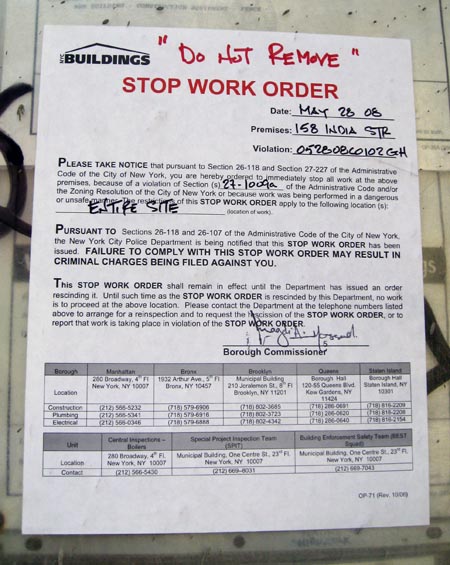 " DO NOT REMOVE "
NYC BUILDINGS
STOP WORK ORDER
Date: MAY 28 08
Premises: 158 INDIA STR
Violation: 052808C0102GH
PLEASE TAKE NOTICE that pursuant to Section 26-118 and Section 27-227 of the Administrative
Code of the City of New York, you are hereby ordered to immediately stop all work at the above
premises, because of a violation of Section (s) 27-1009a of the Administrative Code and/or
the Zoning Resolution of the City of New York or because work was being performed in a dangerous
or unsafe manner. The restrictions of this STOP WORK ORDER apply to the following location (s):
ENTIRE SITE (location of work).
PURSUANT TO Sections 26-118 and 26-107 of the Administrative Code of the City of New York,
the New York City Police Department is being notified that this STOP WORK ORDER has been
issued. FAILURE TO COMPLY WITH THIS STOP WORK ORDER MAY RESULT IN
CRIMINAL CHARGES BEING FILED AGAINST YOU.
This STOP WORK ORDER shall remain in effect until the Department has issued an order
rescinding it. Until such time as the STOP WORK ORDER is rescinded by this Department, no work
is to proceed at the above location. Please contact the Department at the telephone numbers listed
above to arrange for a reinspection and to request the rescission of the STOP WORK ORDER, or to
report that work is taking place in violation of the STOP WORK ORDER.
Borough Commissioner
Borough Manhattan Bronx Brooklyn Queens Staten Island
Location 280 Broadway, 4th Fl New York, NY 10007 1932 Arthur Ave., 5th Fl Bronx, NY 10457 Municipal Building 210 Joralemon St., 8th Fl Brooklyn, NY 11201 Borough Hall 120-55 Queens Blvd. Kew Gardens, NY 11424 Borough Hall Staten Island, NY 10301
Construction (212) 566-5232 (718) 579-6906 (718) 802-3685 (718) 286-0691 (718) 816-2209
Plumbing (212) 566-5341 (718) 579-6916 (718) 802-3723 (718) 286-0620 (718) 816-2208
Electrical (212) 566-0346 (718) 579-6888 (718) 802-4342 (718) 286-0640 (718) 816-2154
Unit Central Inspections – Boilers Special Project Inspection Team (SPIT) Building Enforcement Safety Team (BEST Squad)
Location 280 Broadway, 4th Fl. New York, NY 10007 Municipal Building, One Centre St., 23rd Fl. New York, NY 10007 Municipal Building, One Centre St., 23rd Fl. New York, NY 10007
Contact (212) 566-5430 (212) 669-8031 (212) 669-7043
OP-71 (Rev. 10/06)